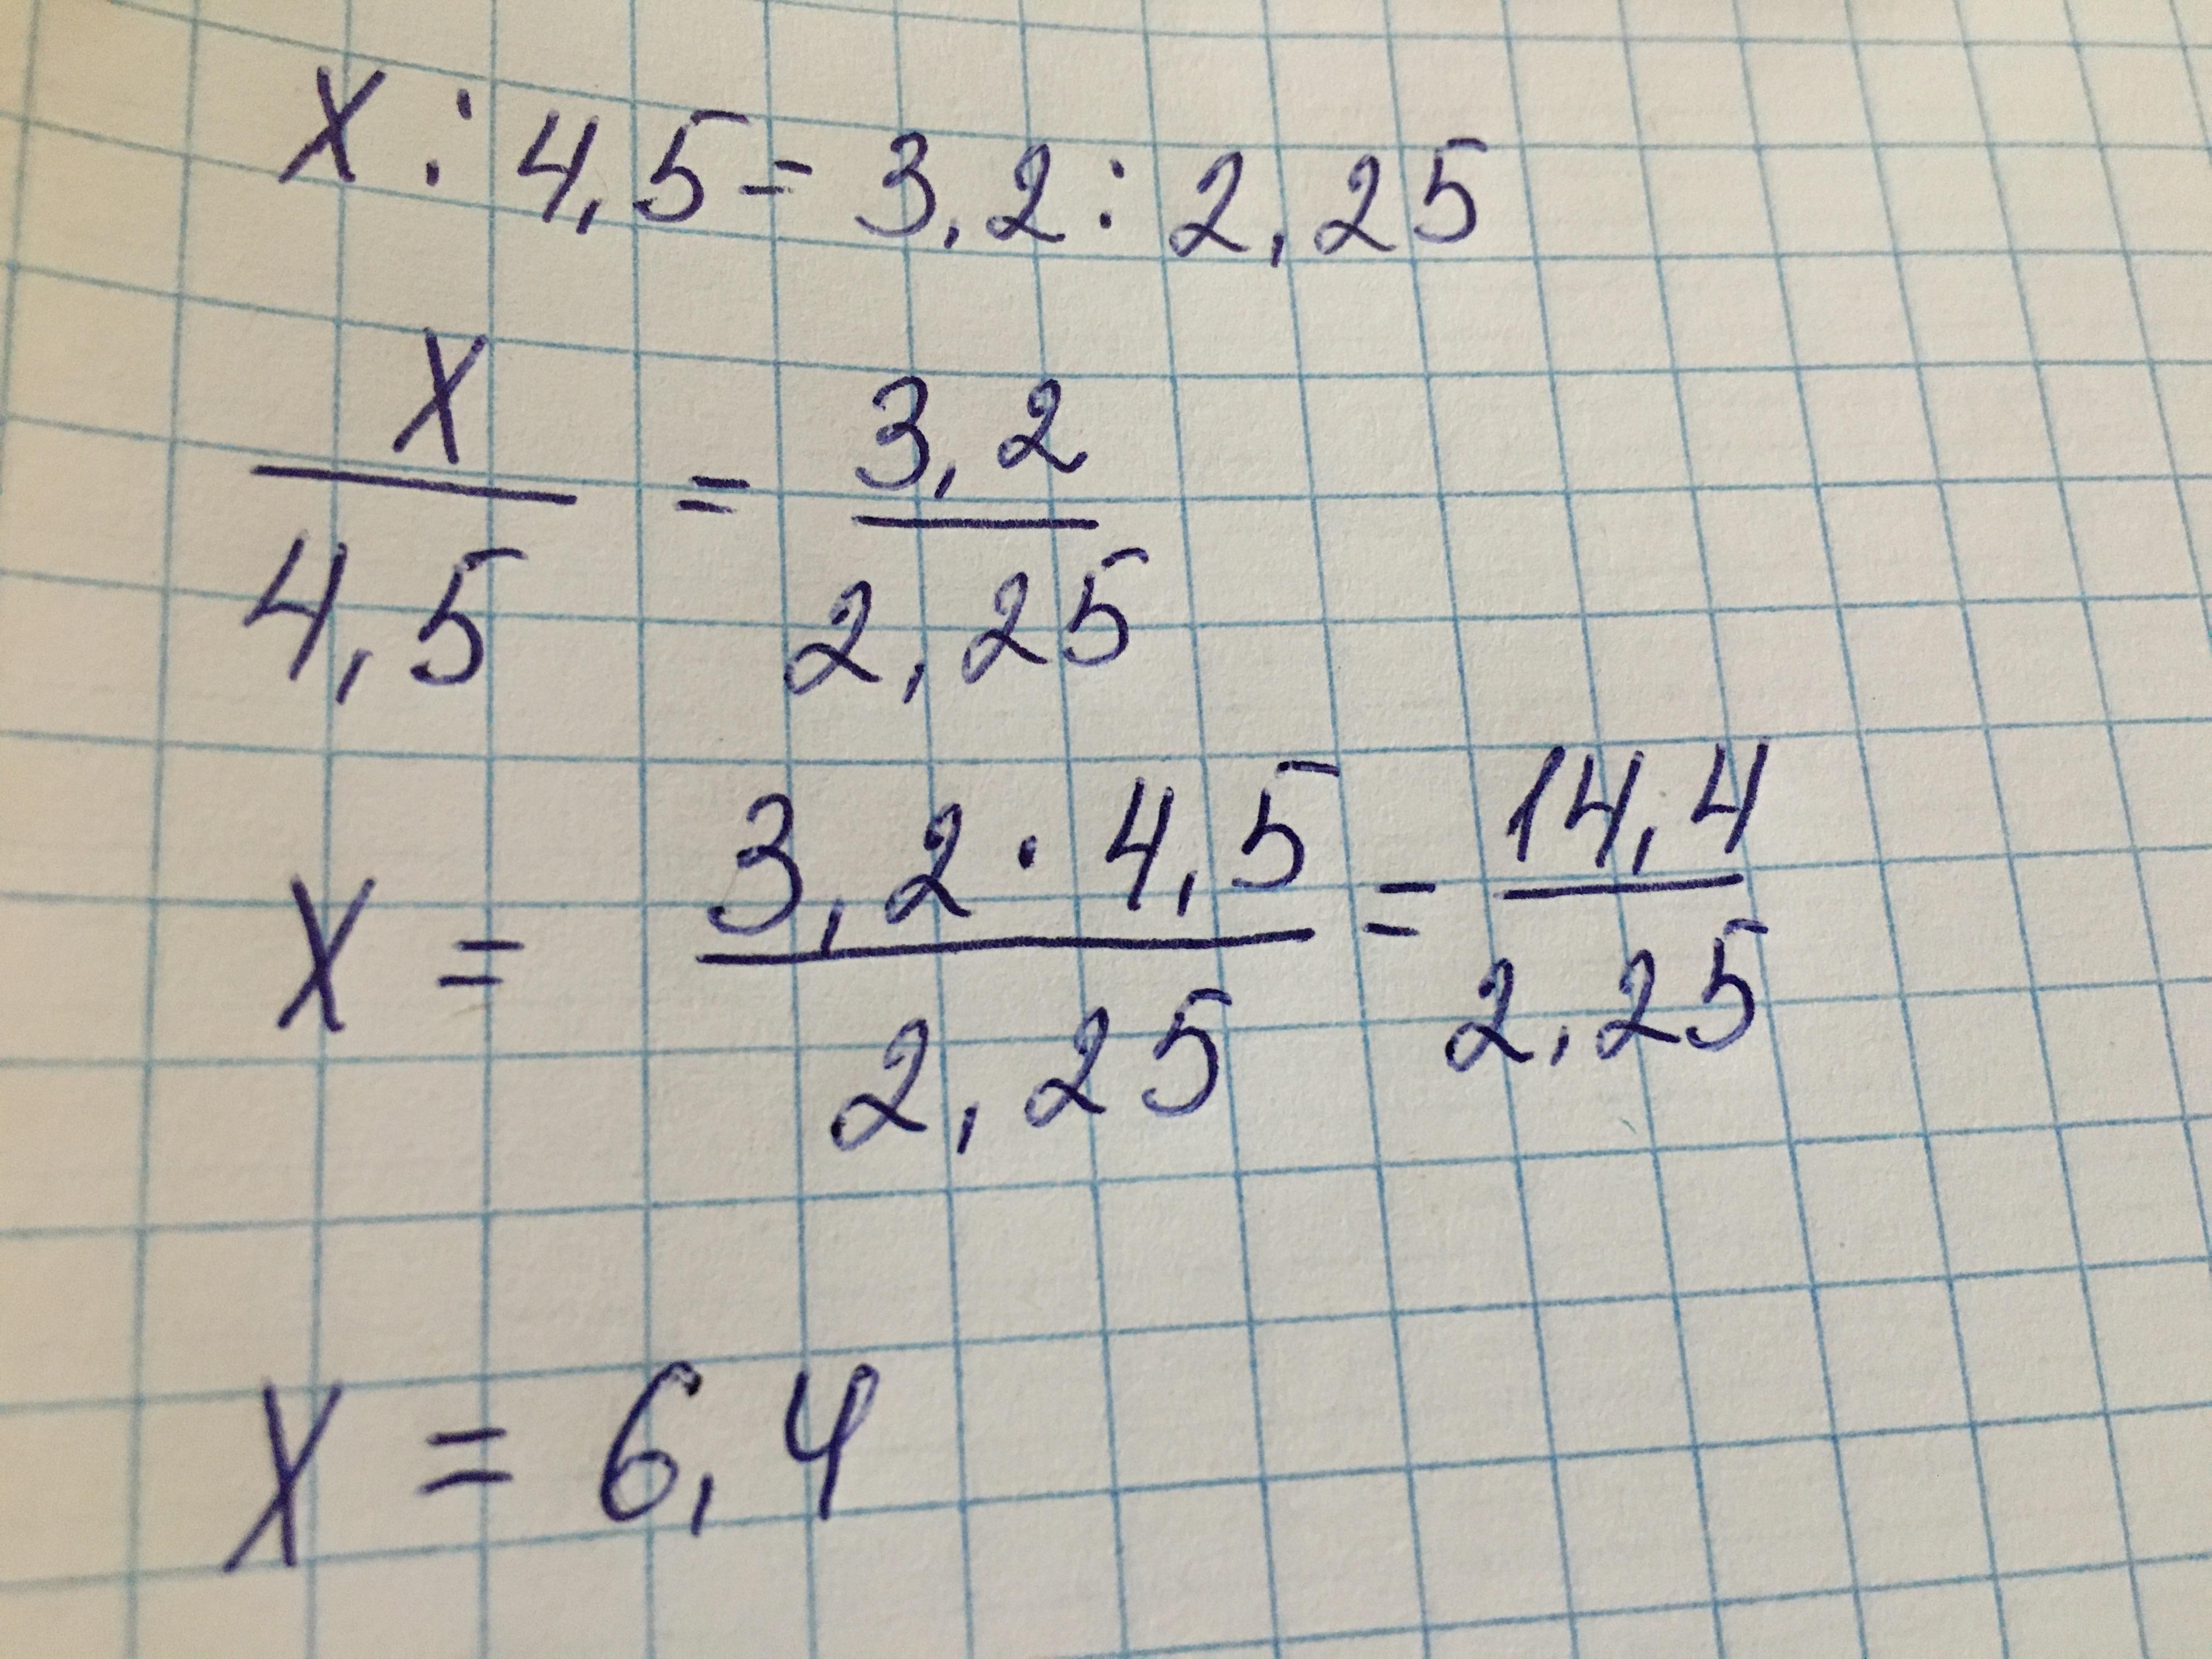 x : 4,5 = 3,2 : 2,25
x/4,5 = 3,2/2,25
x = 3,2 · 4,5/2,25 = 14,4/2,25
x = 6,4